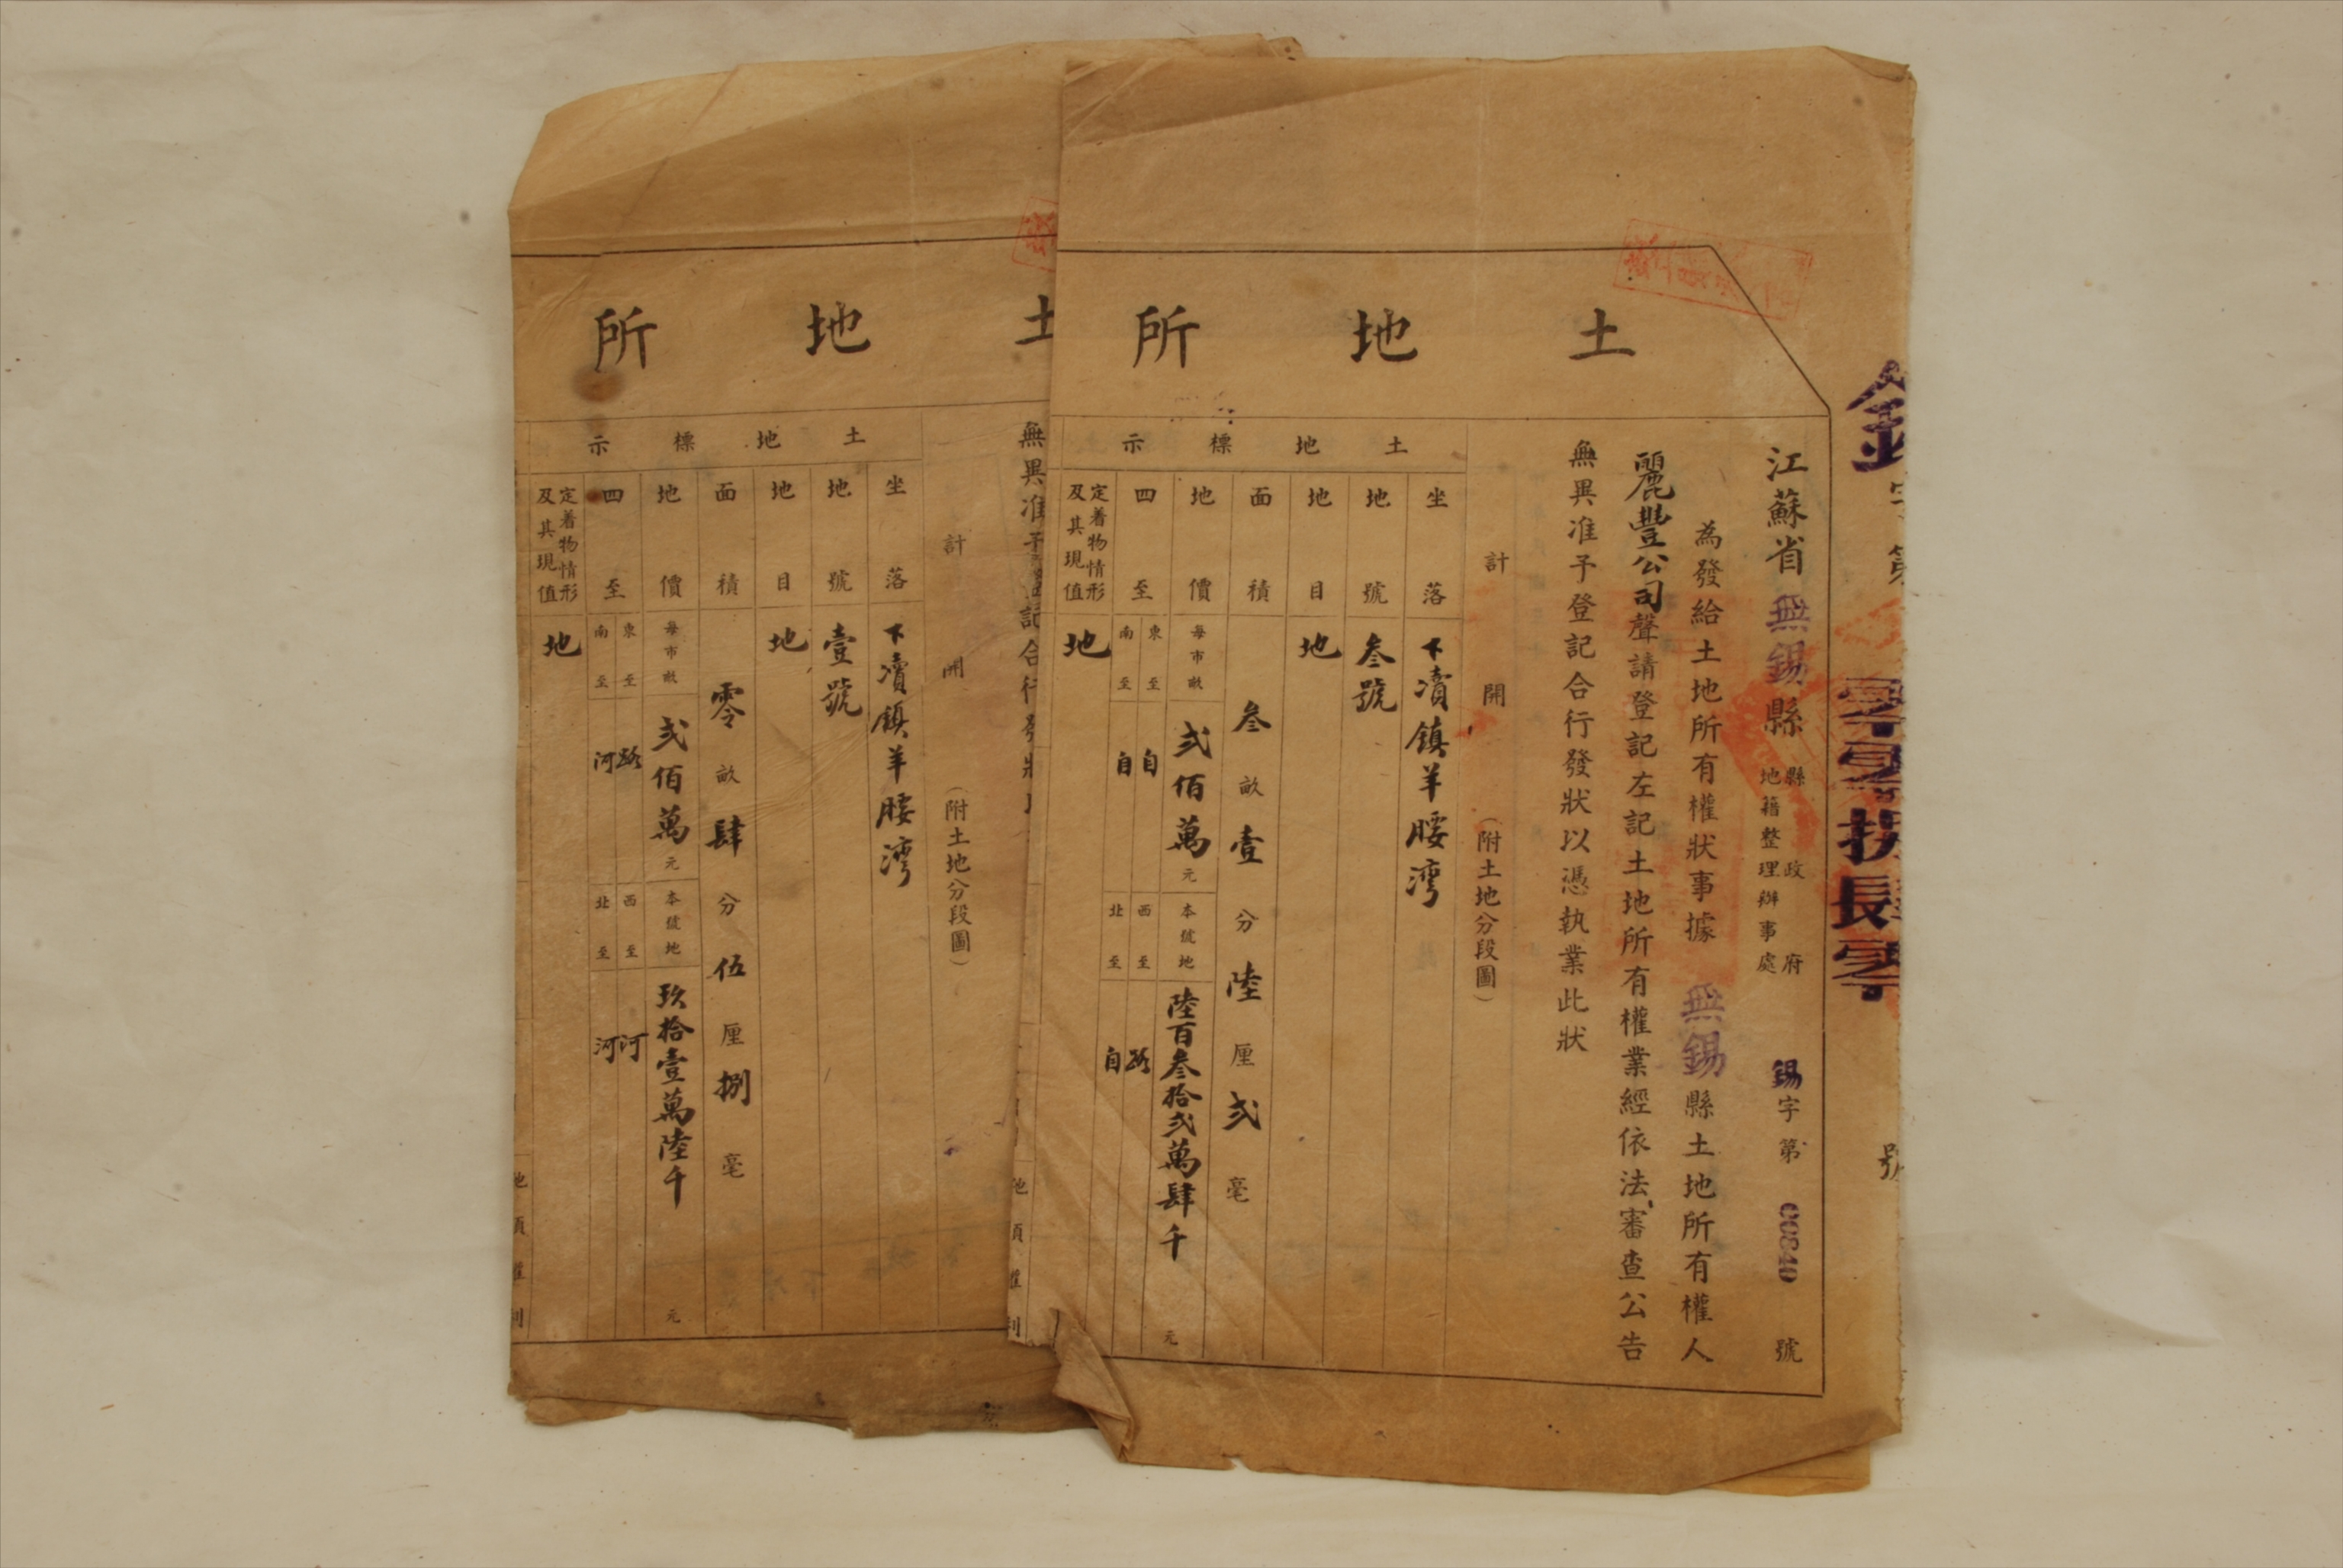 土地所
江蘇省無錫縣縣政府地籍整理辦事處 錫字第00840號
為發給土地所有權狀事據 無錫縣土地所有權人
麗豐公司聲請登記左記土地所有權業經依法審查公告
無異准予登記合行發狀以憑執業此狀
計開(附土地分段圖)
土地標示
坐落 下瀆鎮羊腰灣
地號 叁號
地目 地
面積 叁畝壹分陸厘弍毫
地價 每市畝弍佰萬元 本號地陸百叁拾弍萬肆千元
四至 東至自 西至路
南至自 北至自
定着物情形及其現值 地
號
土地所
無異准予登記合行發狀
計開(附土地分段圖)
土地標示
坐落 下瀆鎮羊腰灣
地號 壹號
地目 地
面積 零畝肆分伍厘捌毫
地價 每市畝弍佰萬元 本號地玖拾壹萬陸千元
四至 東至路 西至河
南至河 北至河
定着物情形及其現值 地